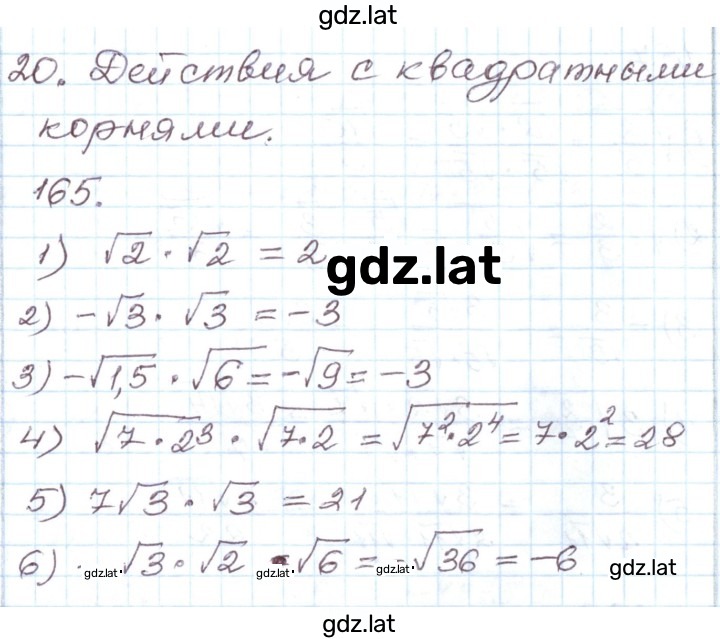 gdz.lat
20. Действия с квадратными
корнями.
165.
1) √2 · √2 = 2
gdz.lat
2) -√3 · √3 = -3
3) -√1,5 · √6 = -√9 = -3
4) √7·2³ · √7·2 = √7²·2⁴ = 7·2² = 28
5) 7√3 · √3 = 21
6) · √3 · √2 · √6 = -√36 = -6
gdz.lat gdz.lat gdz.lat gdz.lat
gdz.lat